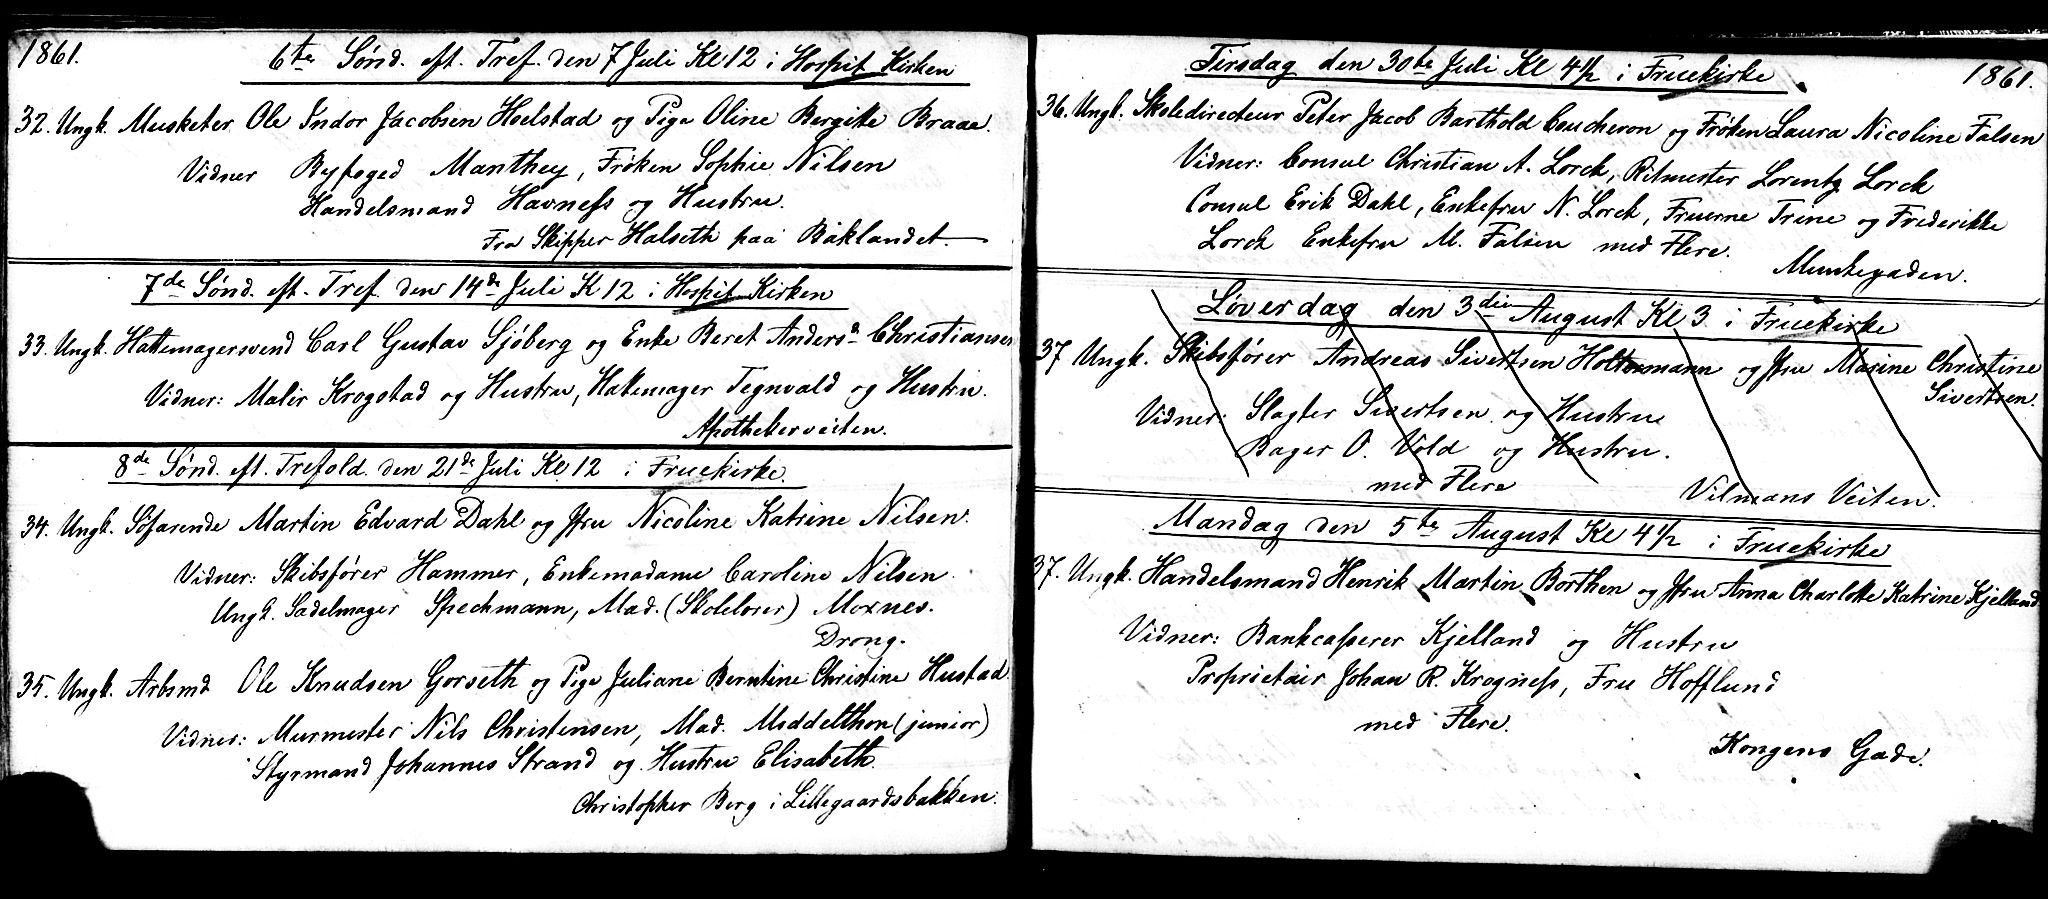 1861.
6te Sønd. eft. Tref. den 7 Juli Kl 12 i Hospit Kirken
32. Ungk. Musketer Ole Indor Jacobsen Hoelstad og Pige Oline Bergitte Braae.
Vidner Byfoged Manthey, Frøken Sophie Nilsen
Handelsmand Havness og Hustru.
Fra Skipper Halseth paa Baklandet.
7de Sønd. eft. Tref. den 14de Juli K 12 i Hospit Kirken
33. Ungk. Hattemagersvend Carl Gustav Sjöberg og Enke Beret Andersn Christiansen
Vidner: Maler Krogstad og Hustru, Hattemager Tegnvald og Hustru.
Apothekerveiten.
8de Sønd. eft. Trefold. den 21de Juli Kl 12 i Fruekirke.
34. Ungk. Søfarende Martin Edvard Dahl og Jfru Nicoline Katrine Nilsen.
Vidner: Skibsfører Hammer, Enkemadame Caroline Nilsen.
Ungk. Sadelmager Spechmann, Mad. (Skolelærer) Moxnes.
Drong.
35. Ungk. Arbsmd Ole Knudsen Gorseth og Pige Juliane Berntine Christine Hustad.
Vidner: Murmester Nils Christensen, Mad. Middelthon (junior)
Styrmand Johannes Strand og Hustru Elisabeth.
Christopher Berg i Lillegaardsbakken.
Tirsdag den 30te Juli Kl 4½ i Fruekirke
1861.
36. Ungk. Skoledirecteur Peter Jacob Barthold Coucheron og Frøken Laura Nicoline Falsen
Vidner: Consul Christian A. Lorck, Ritmester Lorentz Lorck
Consul Erik Dahl, Enkefru N. Lorck, Fruerne Trine og Frederikke
Lorck Enkefru M. Falsen med Flere.
Munkegaden.
Løverdag den 3die August Kl 3 i Fruekirke
37 Ungk. Skibsfører Andreas Sivertsen Holtermann og Jfru Marine Christine
Sivertsen.
Vidner: Slagter Sivertsen og Hustru
Bager O. Vold og Hustru.
med Flere
Vilmans Veiten.
Mandag den 5te August Kl 4½ i Fruekirke
37. Ungk. Handelsmand Henrik Martin Borthen og Jfru Anna Charlotte Katrine Kjelland
Vidner: Bankcasserer Kjelland og Hustru
Proprietair Johan R. Krogness, Fru Hofflund
med Flere.
Kongens Gade.